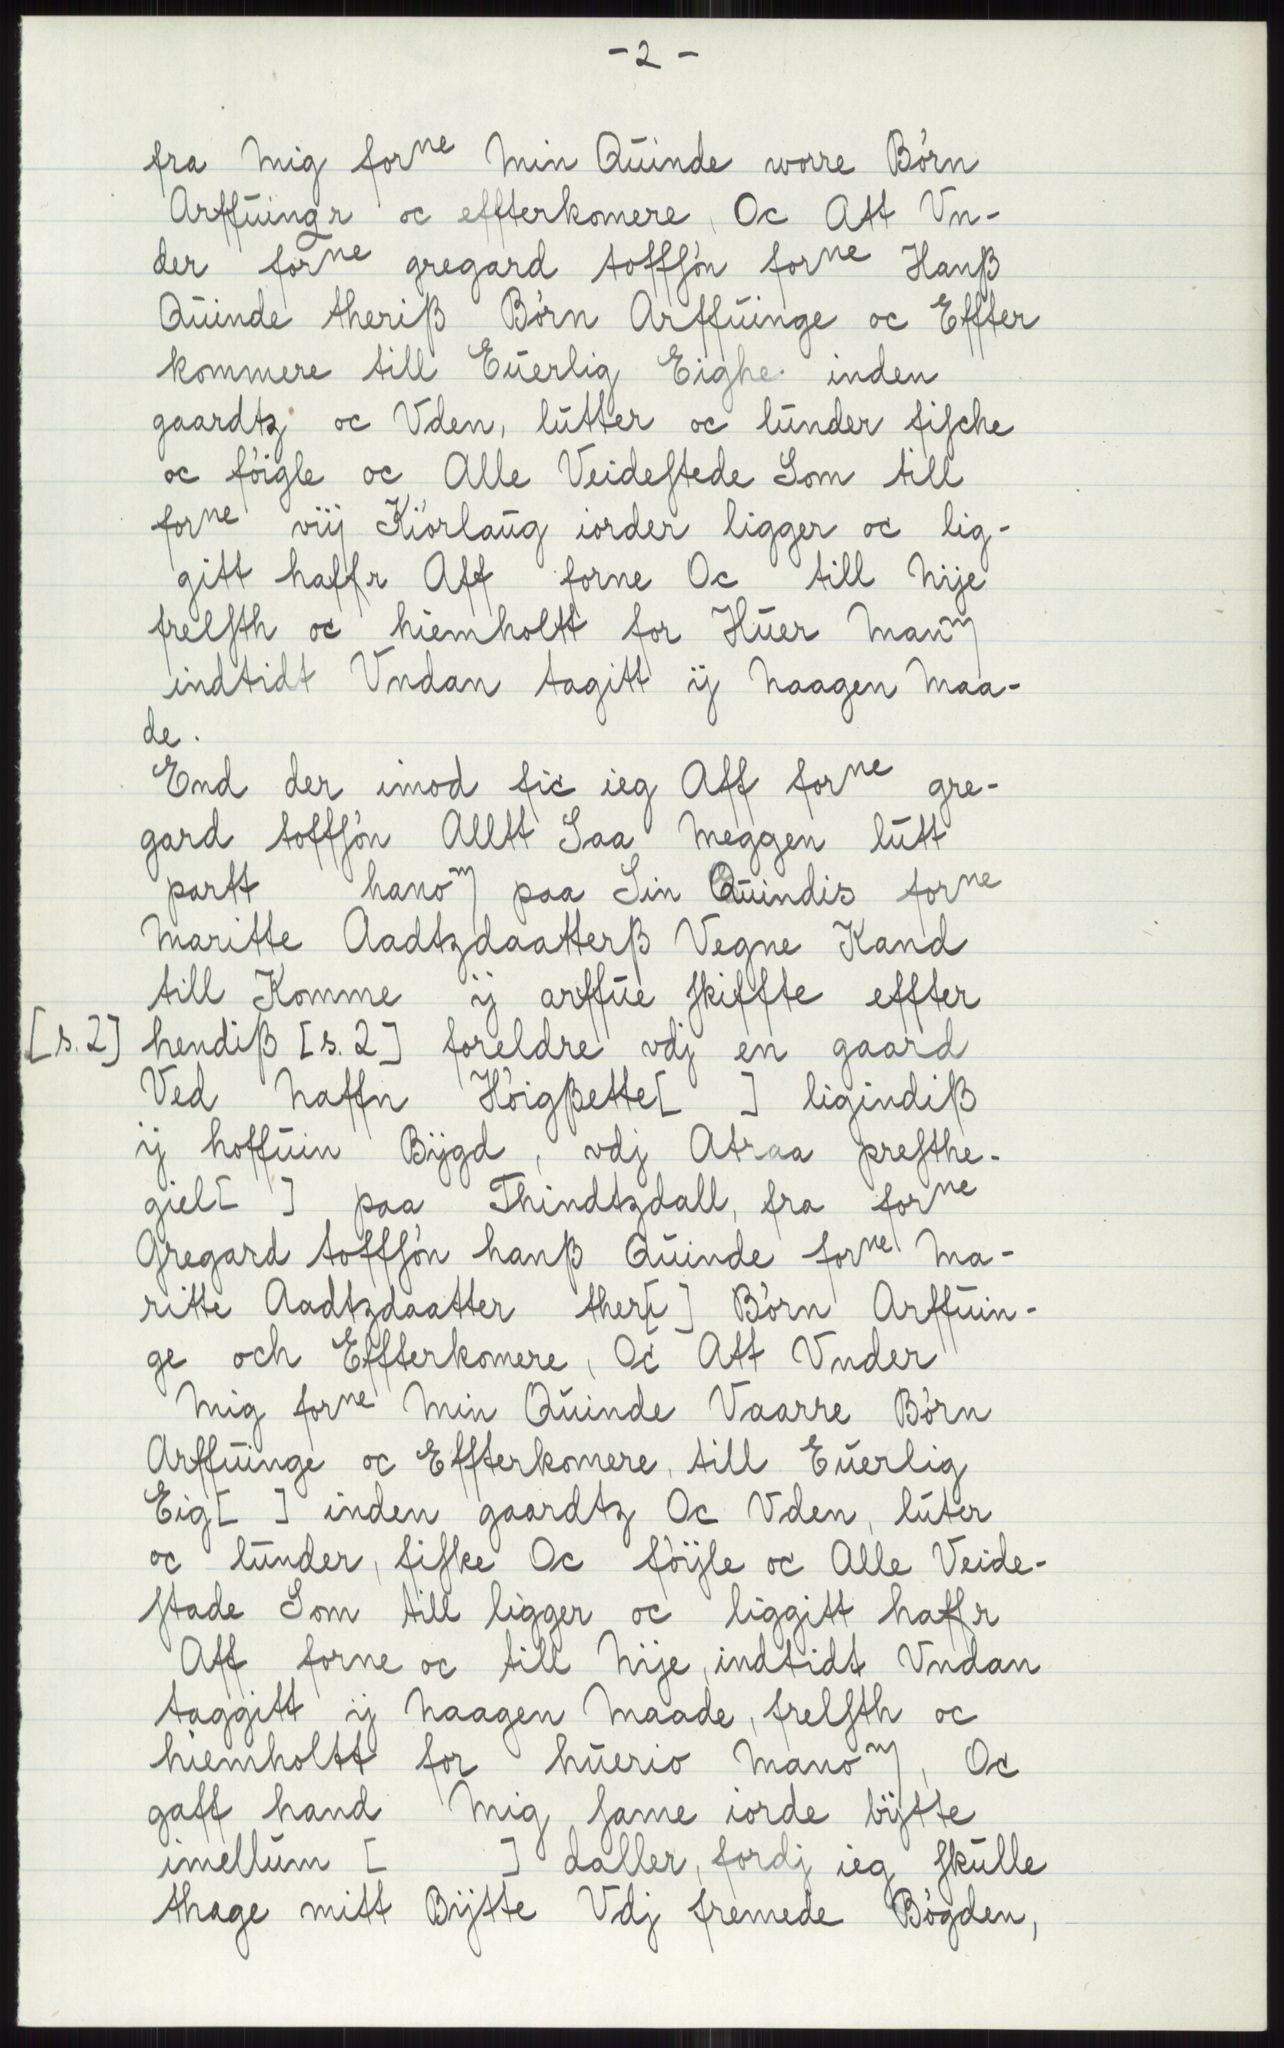 - 2 -
fra mig forne min Quinde worre Börn
Arffuingr oc effterkomere, Oc Att Vn-
der forne gregard toffsön forne Hanß
Quinde theriß Börn Arffuinge oc Effter
kommere till Euerlig Eighe inden
gaardtz oc Vden, lutter oc lunder fische
oc föigle oc Alle Veidestede Som till
forne viij Kiörlaug iorder ligger oc lig-
gitt haffr Aff forne Oc till nije
frelsth oc hiemholtt for Huer manm
indtidt Vndan tagitt ij naagen maa-
de.
End der imod fic ieg Aff forne gre-
gard toffsön Alltt Saa meggen lutt
partt hanom paa Sin Quindis forne
Maritte Aadtzdaatterß Vegne Kand
till Komme ij arffue skiffte effter
[s. 2] hendiß [s. 2] foreldre vdj en gaard
Ved naffn Höigßette[ ] ligindiß
ij hoffuin Bÿgd, vdj Atraa presthe-
giel[ ] paa Thindtzdall, fra forne
Gregard toffsön hanß Quinde forne Ma-
ritte Aadtzdaatter ther[ ] Börn Arffuin-
ge och Effterkomere, Oc Att Vnder
mig forne min Quinde Vaarre Börn
Arffuinge oc Effterkomere, till Euerlig
Eig[ ] inden gaardtz Oc Vden, luter
oc lunder, fiske Oc föÿle oc Alle Veide-
stade Som till ligger oc liggitt haffr
Aff forne oc till nije, indtidt Vndan
taggitt ij naagen maade, frelsth oc
hiemholtt for huerio manom, Oc
gaff hand mig same iorde bÿtte
imellum [ ] daller, fordj ieg skulle
thage mitt Bÿtte Vdj fremede Bögden,